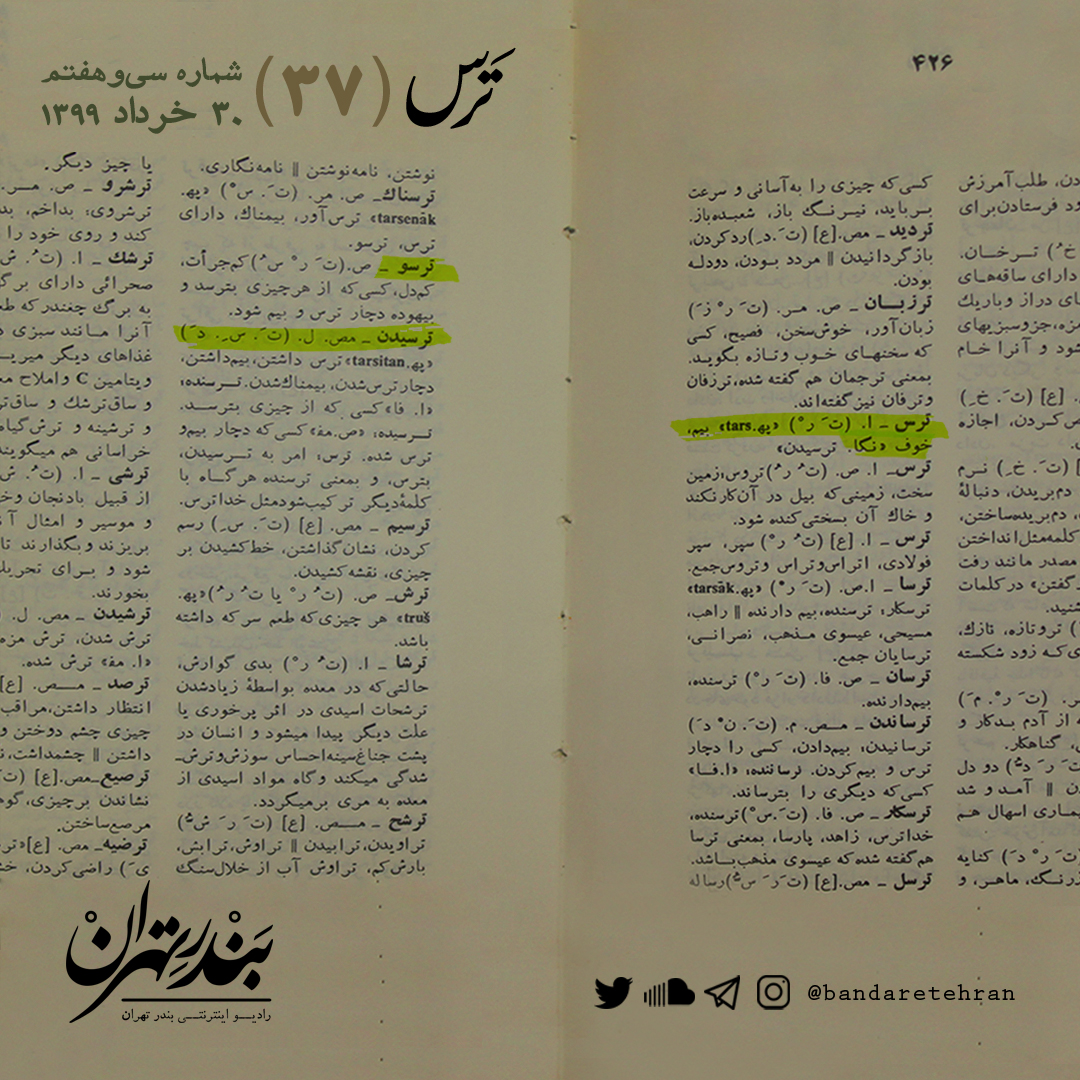 ترس
(۳۷)
شماره سی‌و‌هفتم
۳۰ خرداد ۱۳۹۹
۴۲۶
کسی‌که چیزی را به‌آسانی و سرعت
برباید، نیرنگ باز، شعبده‌باز.
تردید ـ مص.[ع] (تَ.دِ)رد کردن،
بازگردانیدن || مردد بودن، دودله
بودن.
ترزبان ـ ص. مر. (تَ رْ زَ)
زبان‌آور، خوش‌سخن، فصیح، کسی
که سخنهای خوب وتازه بگوید.
بمعنی ترجمان هم گفته شده، ترزفان
وترفان نیزگفته‌اند.
ترس ـ ا. (تَ رْ) «په.tars» بیم،
خوف «نگا. ترسیدن»
ترس ـ ا. ص. (تُ رُ) تروس، زمین
سخت، زمینی‌که بیل در آن‌کارنکند
و خاك آن بسختی‌کنده شود.
ترس ـ ا. [ع] (تُ رْ) سپر، سپر
فولادی، اتراس‌وتراس وتروس‌جمع.
ترسا ـ ا.ص. (تَ رْ) «په.tarsāk»
ترسکار، ترسنده، بیم دارنده || راهب،
مسیحی، عیسوی مذهب، نصرانی،
ترسایان جمع.
ترسان ـ ص. فا. (تَ رْ) ترسنده،
بیم‌دارنده.
ترساندن ـ مص. م. (تَ. نْ دَ)
ترسانیدن، بیم‌دادن، کسی را دچار
ترس و بیم‌کردن. ترساننده: «ا.فا»
کسی‌که دیگری را بترساند.
ترسکار ـ ص. فا. (تَ.سْ) ترسنده،
خداترس، زاهد، پارسا، بمعنی ترسا
هم‌گفته شده‌که عیسوی مذهب‌باشد.
ترسل ـ مص.[ع] (تَ رَ سُّ) رساله
نوشتن، نامه‌نوشتن || نامه‌نگاری.
ترسناك ـ ص. مر. (تَ. سْ) «په.
tarsenāk» ترس‌آور، بیمناك، دارای
ترس، ترسو.
ترسو ـ ص.(تَ رْ سُ) کم‌جرأت،
کم‌دل، کسی‌که از هرچیزی بترسد و
بیهوده دچار ترس و بیم شود.
ترسیدن ـ مص. ل. (تَ. سِ. دَ)
«په.tarsitan» ترس داشتن، بیم‌داشتن،
دچارترس‌شدن، بیمناك‌شدن. ترسنده:
«ا. فا» کسی‌که از چیزی بترسد.
ترسیده: «ص.مف» کسی‌که دچار بیم‌و
ترس شده. ترس: امر به ترسیدن،
بترس، و بمعنی ترسنده هرگاه با
کلمهٔ‌دیگر ترکیب‌شودمثل خداترس.
ترسیم ـ مص. [ع] (تَ. سِ) رسم
کردن، نشان‌گذاشتن، خط‌کشیدن بر
چیزی، نقشه‌کشیدن.
ترش ـ ص. (تُ رْ یا تُ رُ) «په.
truš» هر چیزی‌که طعم سرکه داشته
باشد.
ترشا ـ ا. (تُ رْ) بدی گوارش،
حالتی‌که در معده بواسطهٔ زیادشدن
ترشحات اسیدی در اثر پرخوری یا
علت دیگر پیدا میشود و انسان در
پشت جناغ‌سینه‌احساس سوزش‌وترش‌ـ
شدگی میکند وگاه مواد اسیدی از
معده به مری برمیگردد.
ترشح ـ مص. [ع] (تَ رَ شُّ)
تراویدن، ترابیدن || تراوش، ترابش،
بارش‌کم، تراوش آب از خلال‌سنگ
یا چیز دیگر.
ترشرو ـ ص. مر.
ترشروی: بداخم،
کند و روی خود را
ترشك ـ ا. (تُ.
صحرائی دارای
به برگ چغندر که
آنرا مانند سبزی
غذاهای دیگر
ویتامین C واملاح
و ساق‌ترشك و
و ترشینه و ترش‌گیاه
خراسانی هم میگویند
ترشی ـ ا. (تُ.
از قبیل بادنجان
و موسیر و امثال
بریزند وبگذارند تا
شود و برای
بخورند.
ترشیدن ـ مص. ل.
ترش شدن، ترش مزه
«ا. مف» ترش شده.
ترصد ـ مص. [ع]
انتظار داشتن، مراقب
چیزی چشم دوختن و
داشتن || چشمداشت،
ترصیع ـ مص.[ع]
نشاندن برچیزی،
مرصع‌ساختن.
ترضیه ـ مص. [ع]
راضی‌کردن،
طلب‌آمرزش
فرستادن‌برای
ترخان.
دارای ساقه‌های
های دراز وباریك
جزوسبزیهای
و آنرا خام
[ع] (تَ. خِ)
کردن، اجازه
(تَ. خِ) نرم
دم‌بریدن، دنبالهٔ
دم‌بریده‌ساختن،
کلمه‌مثل‌انداختن
مصدر مانند رفت
گفتن» درکلمات
تروتازه، نازك،
که زود شکسته
(تَ رْ. مَ)
از آدم بدکار و
گناهکار.
دو دل
|| آمد و شد
بیماری اسهال هم
(تَ رْ دَ) کنایه
ماهر، و
بندر تهران
رادیو اینترنتی بندر تهران
@bandaretehran